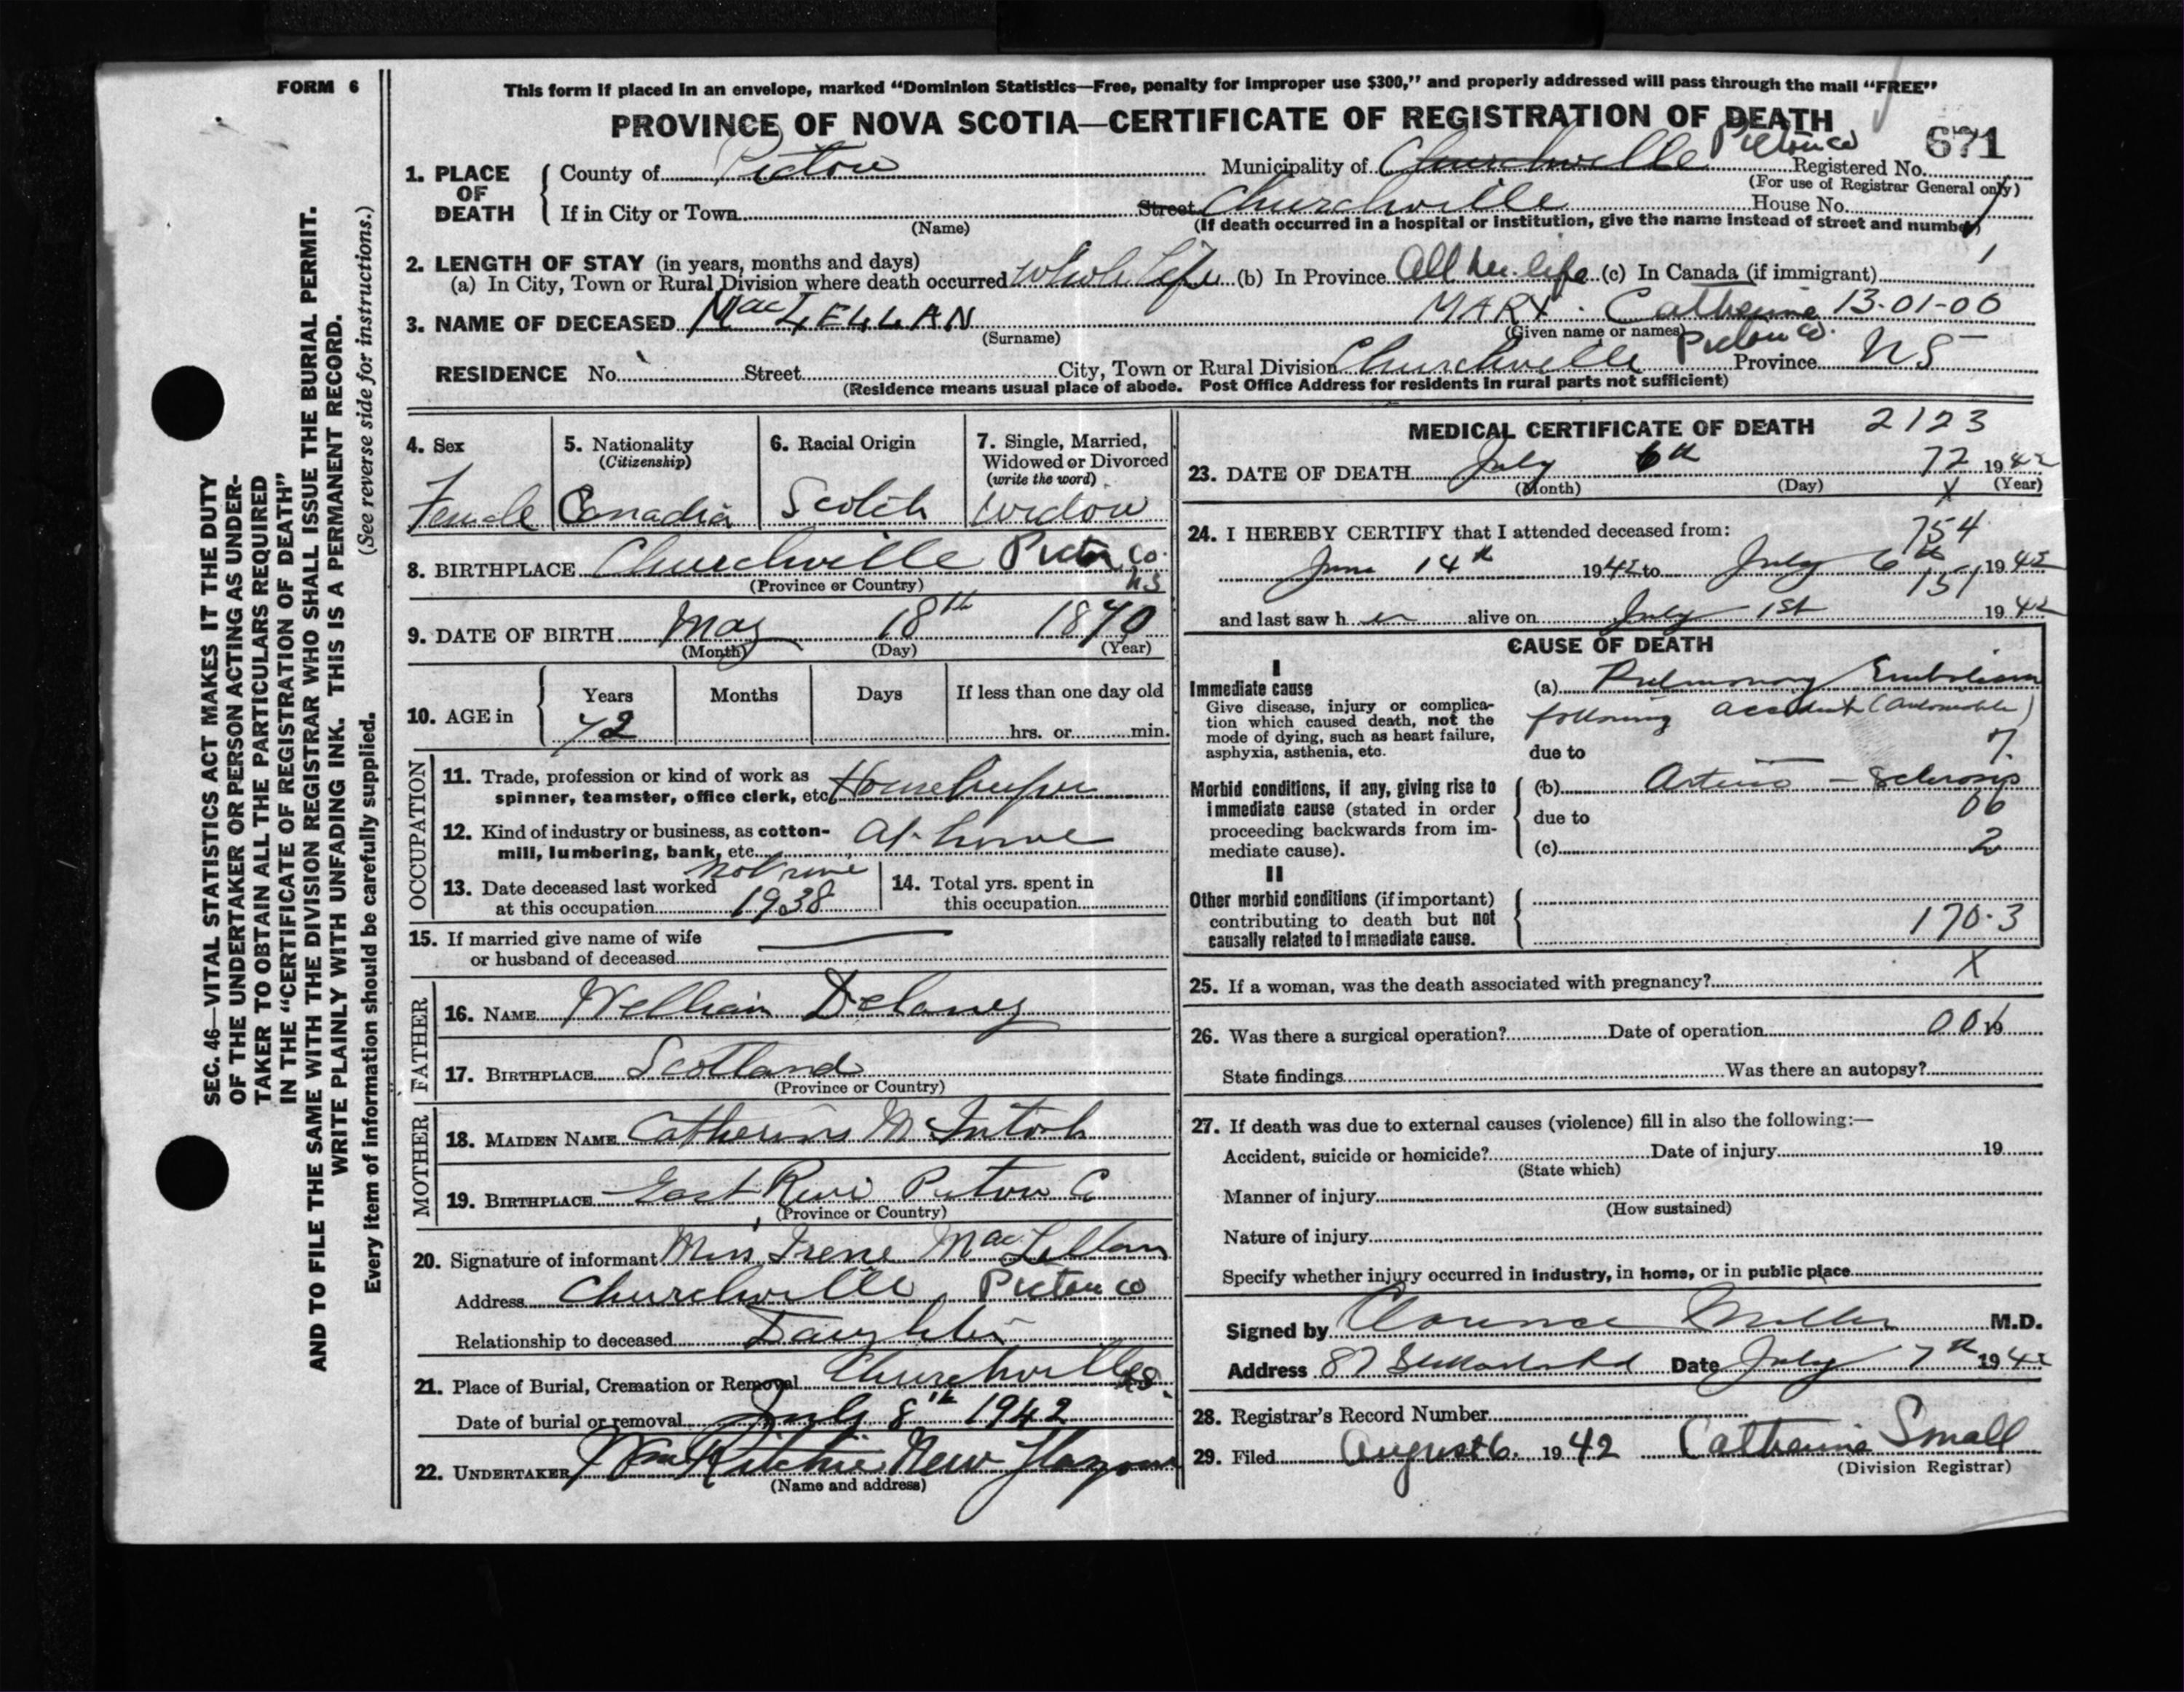 FORM 6
This form if placed in an envelope, marked "Dominion Statistics—Free, penalty for improper use $300," and properly addressed will pass through the mail "FREE"
PROVINCE OF NOVA SCOTIA—CERTIFICATE OF REGISTRATION OF DEATH
671
1. PLACE OF DEATH
County of Pictou
Municipality of Churchville Pictou Co
Registered No.
(For use of Registrar General only)
If in City or Town
(Name)
Street Churchville
House No.
(If death occurred in a hospital or institution, give the name instead of street and number)
2. LENGTH OF STAY (in years, months and days)
(a) In City, Town or Rural Division where death occurred whole life (b) In Province All her life (c) In Canada (if immigrant)
3. NAME OF DECEASED MacLELLAN MARY Catherine 13-01-00
(Surname) (Given name or names)
RESIDENCE No. Street City, Town or Rural Division Churchville Pictou Co. Province NS
(Residence means usual place of abode. Post Office Address for residents in rural parts not sufficient)
SEC. 46—VITAL STATISTICS ACT MAKES IT THE DUTY
OF THE UNDERTAKER OR PERSON ACTING AS UNDER-
TAKER TO OBTAIN ALL THE PARTICULARS REQUIRED
IN THE "CERTIFICATE OF REGISTRATION OF DEATH"
AND TO FILE THE SAME WITH THE DIVISION REGISTRAR WHO SHALL ISSUE THE BURIAL PERMIT.
WRITE PLAINLY WITH UNFADING INK. THIS IS A PERMANENT RECORD.
(See reverse side for instructions.)
Every item of information should be carefully supplied.
4. Sex
Female
5. Nationality
(Citizenship)
Canadia
6. Racial Origin
Scotch
7. Single, Married,
Widowed or Divorced
(write the word)
Widow
8. BIRTHPLACE Churchville Pictou Co.
NS
(Province or Country)
9. DATE OF BIRTH May 18th 1870
(Month) (Day) (Year)
10. AGE in
Years Months Days If less than one day old
72 hrs. or min.
OCCUPATION
11. Trade, profession or kind of work as
spinner, teamster, office clerk, etc. Housekeeper
12. Kind of industry or business, as cotton-
mill, lumbering, bank, etc. At home
13. Date deceased last worked
at this occupation 1938
14. Total yrs. spent in
this occupation
15. If married give name of wife
or husband of deceased
FATHER
16. NAME William Delaney
17. BIRTHPLACE Scotland
(Province or Country)
MOTHER
18. MAIDEN NAME Catherine McIntosh
19. BIRTHPLACE East River Pictou Co
(Province or Country)
20. Signature of informant Miss Irene MacLellan
Address Churchville Pictou Co
Relationship to deceased Daughter
21. Place of Burial, Cremation or Removal Churchville NS.
Date of burial or removal July 8th 1942
22. UNDERTAKER Wm Ritchie New Glasgow
(Name and address)
MEDICAL CERTIFICATE OF DEATH 2123
23. DATE OF DEATH July 6th 72 1942
(Month) (Day) X (Year)
24. I HEREBY CERTIFY that I attended deceased from: 754
June 14th 1942 to July 6th 1942
151
and last saw her alive on July 1st 1942
CAUSE OF DEATH
I
Immediate cause
Give disease, injury or complica-
tion which caused death, not the
mode of dying, such as heart failure,
asphyxia, asthenia, etc.
(a) Pulmonary Embolism
following accident (automobile)
due to 7.
Morbid conditions, if any, giving rise to
immediate cause (stated in order
proceeding backwards from im-
mediate cause).
(b) Arterio-sclerosis
due to 00
(c) 2
II
Other morbid conditions (if important)
contributing to death but not
causally related to immediate cause.
170.3
25. If a woman, was the death associated with pregnancy? X
26. Was there a surgical operation? Date of operation 00 19
State findings Was there an autopsy?
27. If death was due to external causes (violence) fill in also the following:—
Accident, suicide or homicide? Date of injury 19
(State which)
Manner of injury
(How sustained)
Nature of injury
Specify whether injury occurred in industry, in home, or in public place
Signed by Clarence Miller M.D.
Address 87 Date July 7th 1942
28. Registrar's Record Number
29. Filed August 6. 1942 Catherine Small
(Division Registrar)